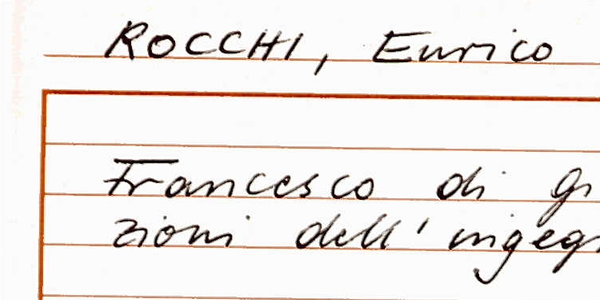 ROCCHI, Enrico
Francesco di gi
zioni dell'ingegn